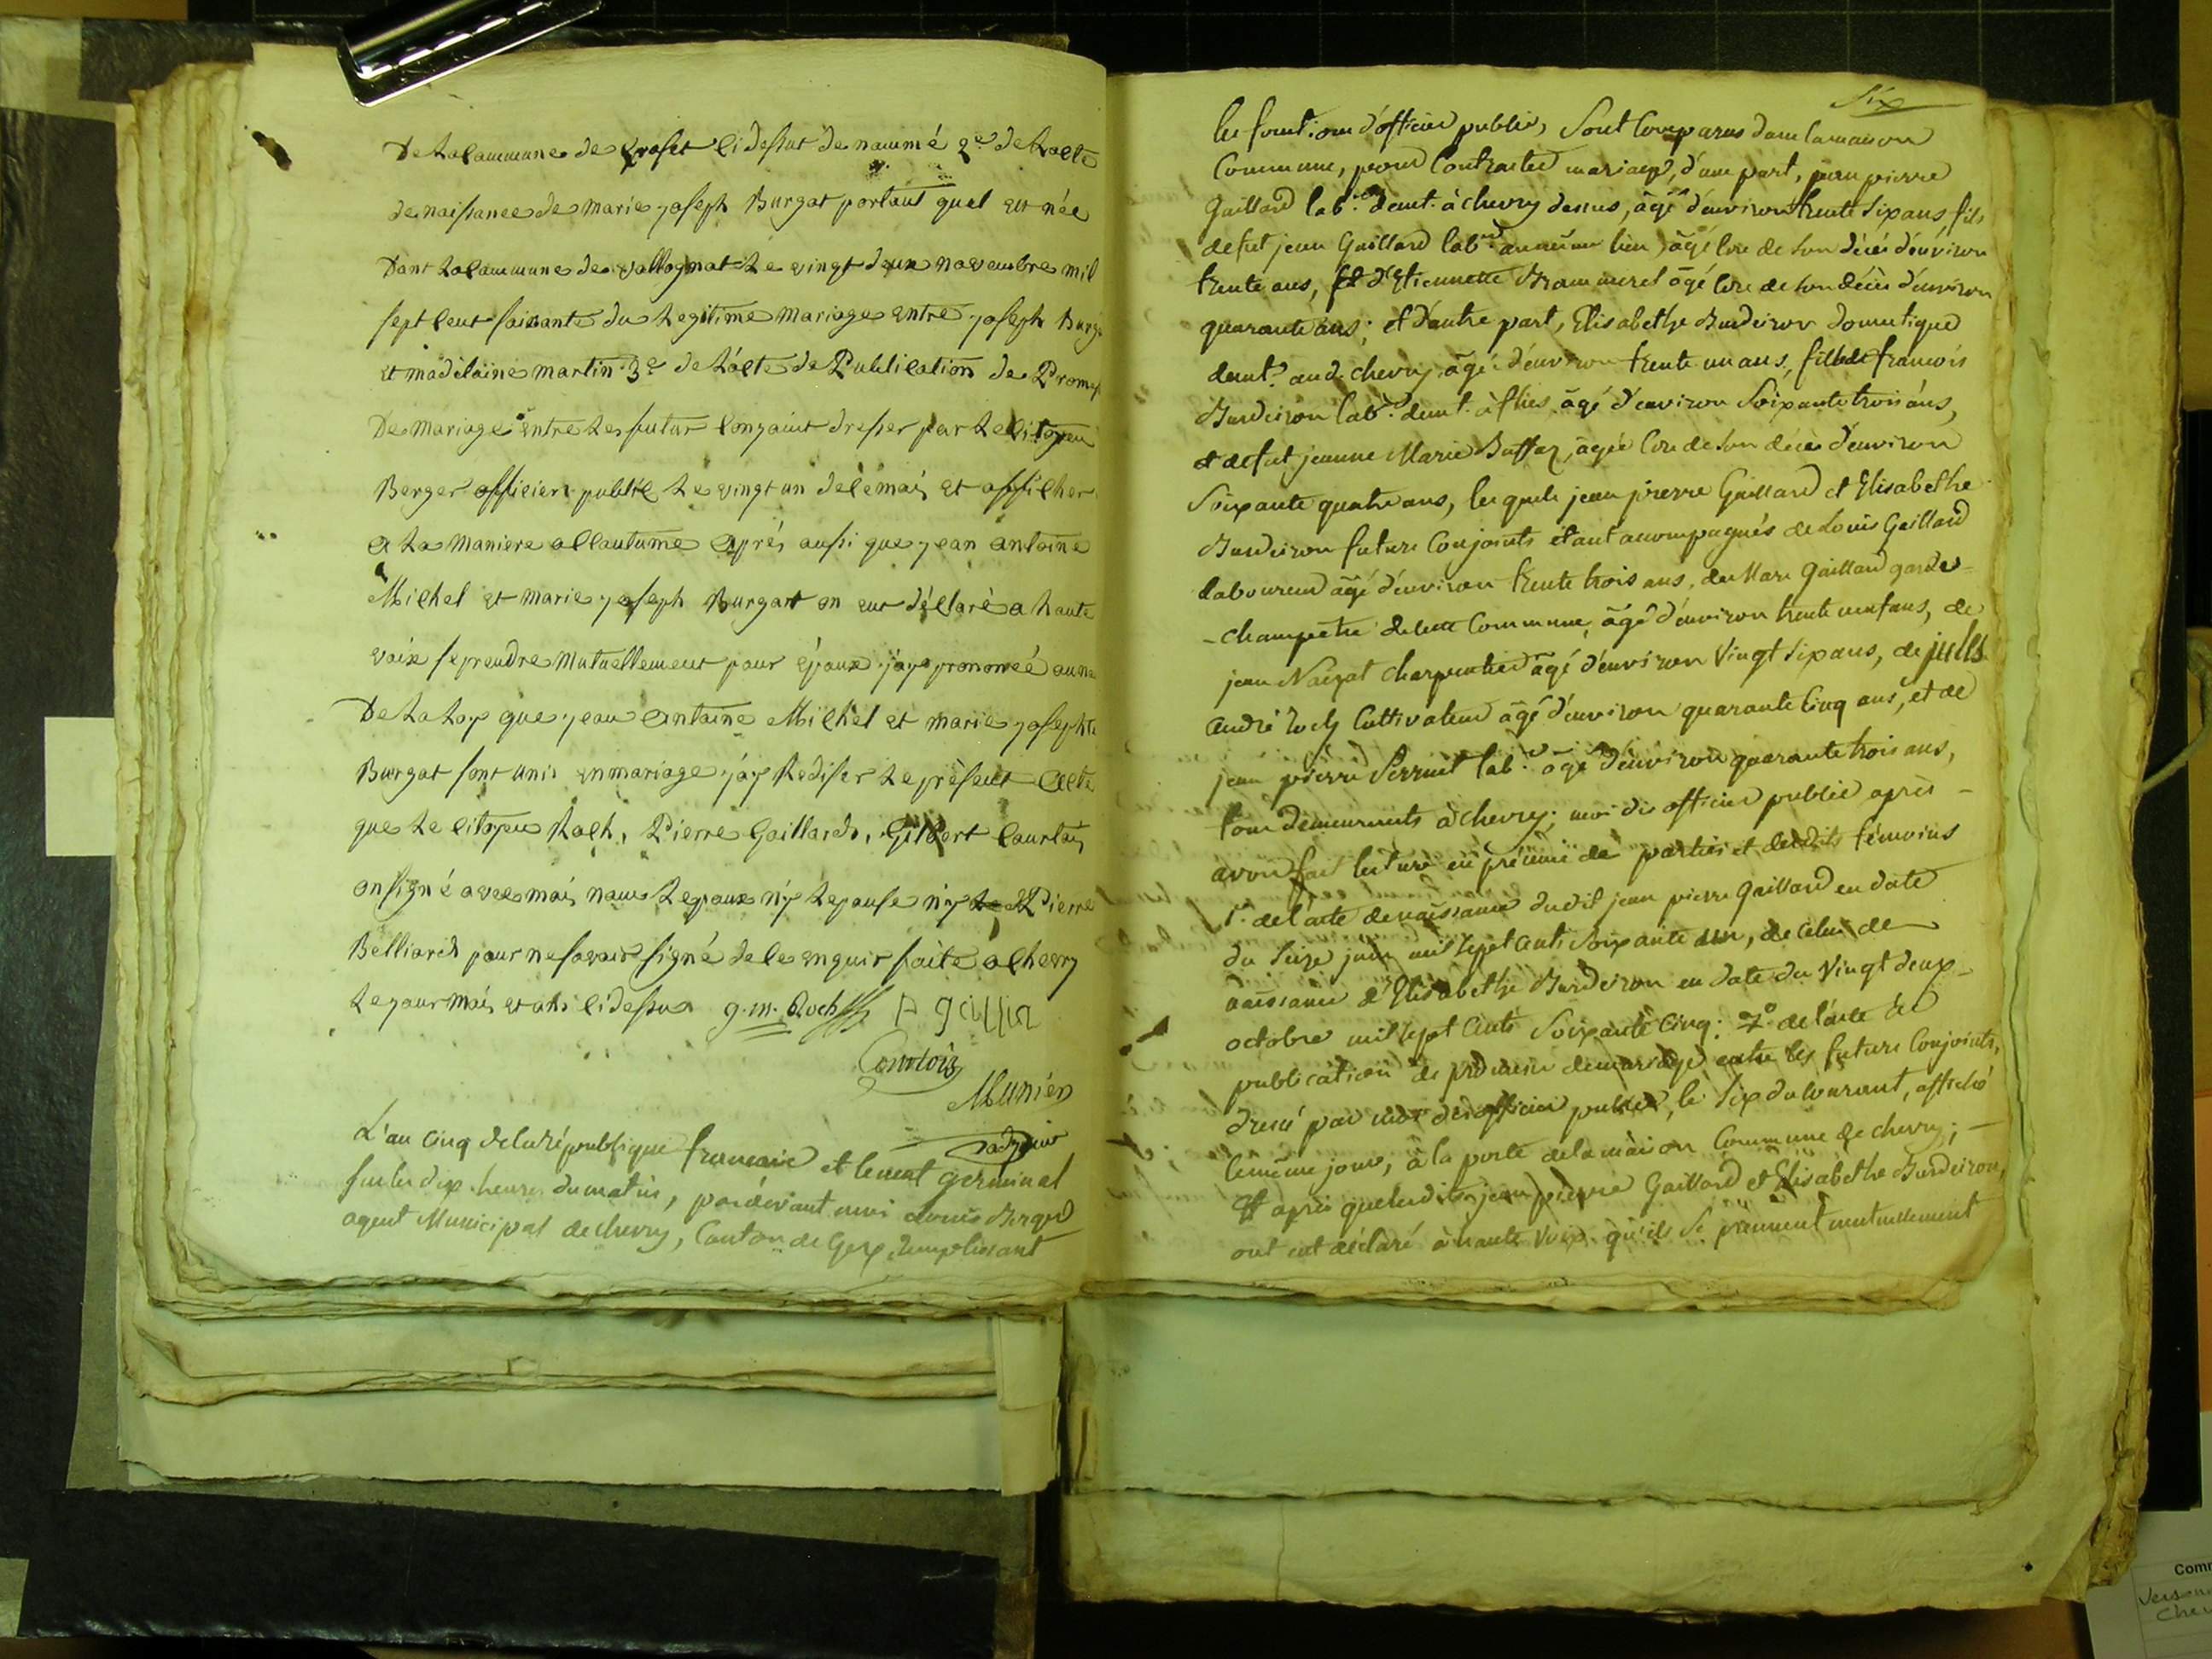 De la Commune de Crosét Cidessus denommé 2e de Lacte
de naissance de marie joseph Burgat portant quel est née
Dant la Commune de vallognat Le vingt deux novembre mil
sept cent soixante du Legitime mariage entre joseph Burga
et madélaine martin 3e de L'acte de Publication de Prome
De mariage entre Les futur Conjoint dresser par Le Citoyen
Berger officier public Le vingt un de Ce mois et afficher
a La maniere allautume après aussi que jean antoine
Michel et marie joseph Burgat on eut déclaré a haute
voix se prendre mutuellement pour époux j'ay prononcé au
De La Loy que jean antoine Michel et marie joseph
Burgat sont unis en mariage j'ay Rediser Le présent acte
que Le Citoyen Roch, Pierre Gaillard, Gilbert Courtois
on signé avec moi, nom Lepoux n'y Lepouse n'y Pierre
Belliard pour ne savoir signé de Ce enquir faite a Chevry
Le jour mois et ans Cidessus g. m. Roch P gallia
Comtois
Munier
adjoint
L'an Cinq de la république francaise et le neuf germinal
sur les dix heures du matin, pardevant moi Louis Berger
agent Municipal de chevry, Canton de Gex, remplissant
Six
les fonctions d'officier public, Sont Comparus dans la maison
Commune, pour Contracter mariage, d'une part, jean pierre
Gaillard labr. demt. à chevry dessus, âgé d'environ trente six ans fils
de fut jean Gaillard labr. au même lieu, âgé lors de son décès d'environ
trente ans, et d'Etiennette Brammerel âgé lors de son décès d'environ
quarante ans; et d'autre part, Elisabethe Burdeiron domestique
demt. aud. chevry âgé d'environ trente un ans, fille de francois
Burdeiron labr. demt. à flies âgé d'environ Soixante trois ans,
et de fut jeanne Marie Buffaz, âgée lors de son décès d'environ
Soixante quatre ans, les quels jean pierre Gaillard et Elisabethe
Burdeiron futurs Conjoints étant accompagnés de Louis Gaillard
laboureur âgé d'environ trente trois ans, de Marc Gaillard garde
-champetre de cette Commune, âgé d'environ trente neuf ans, de
jean Naizat charpentier âgé d'environ Vingt Six ans, de jules
andré roch Cultivateur âgé d'environ quarante Cinq ans, et de
jean pierre Perruet labr. âgé d'environ quarante trois ans,
tous demeurants à chevry; moi dit officier public après -
avoir fait lecture en présence de parties et desdits témoins
1° de l'acte de naissance dudit jean pierre Gaillard en date
du Seize juin mil sept Cents Soixante un, de Celui de
naissance d'Elisabethe Burdeiron en date du Vingt deux
octobre mil sept Cents Soixante Cinq: 2° de l'acte de
publication de promesse de mariage entre les futurs Conjoints,
dressé par moi dit officier public, le Six du Courant, affiché
le même jour, à la porte de la maison Commune de chevry; -
Et après que lesdits jean pierre Gaillard et Elisabethe Burdeiron,
ont eut déclaré à haute Voix qu'ils Se prennent mutuellement
Comm